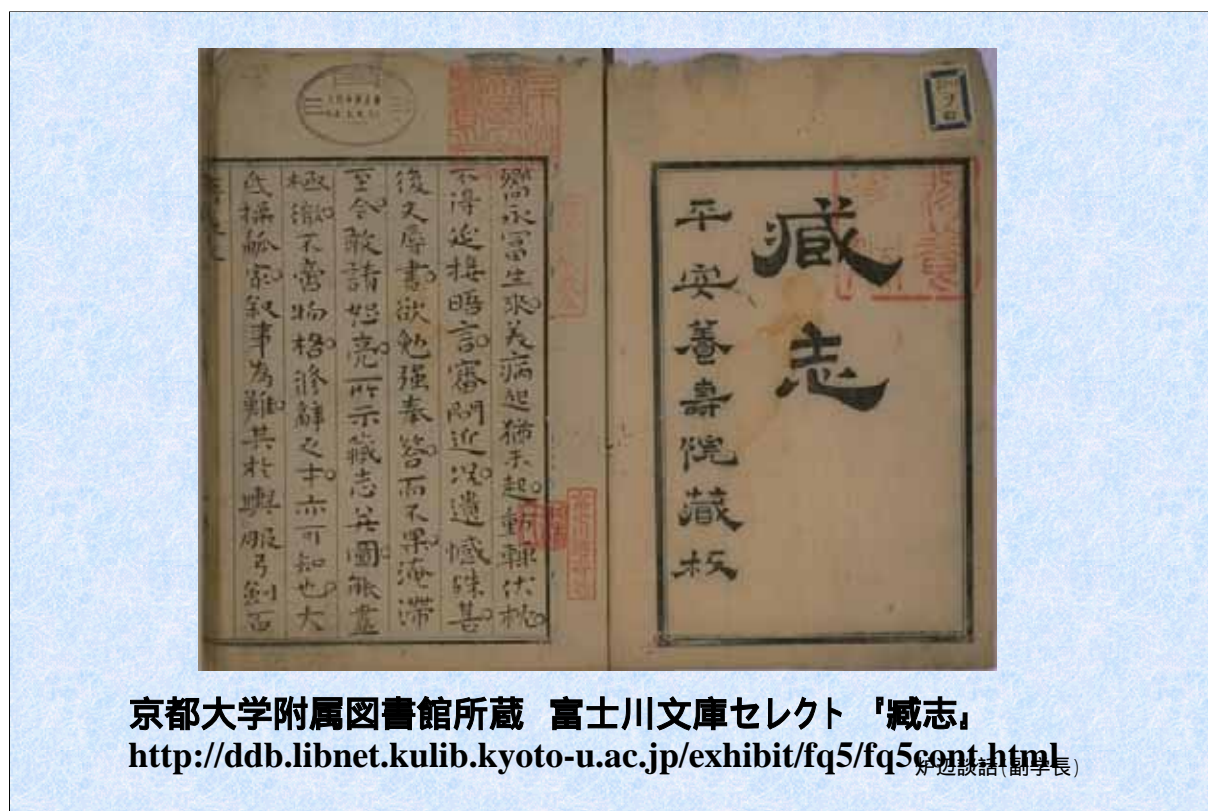 臧志
平安養壽院藏板
嚮永富生來。美病起猶未起。動輙伏枕。
不得延接晤言。審問近況。遺憾殊甚。
後又辱書。欲勉强奉答。而不果。淹滯
至今。敢請恕亮。所示藏志并圖。能盡
極徹。不啻物格。脩辭之才。亦可知也。大
氐操觚家。叙事為難。其於輿服弓劍百
京都大学附属図書館所蔵 富士川文庫セレクト 『臧志』
http://ddb.libnet.kulib.kyoto-u.ac.jp/exhibit/fq5/fq5cont.html
炉辺談話(副学長)